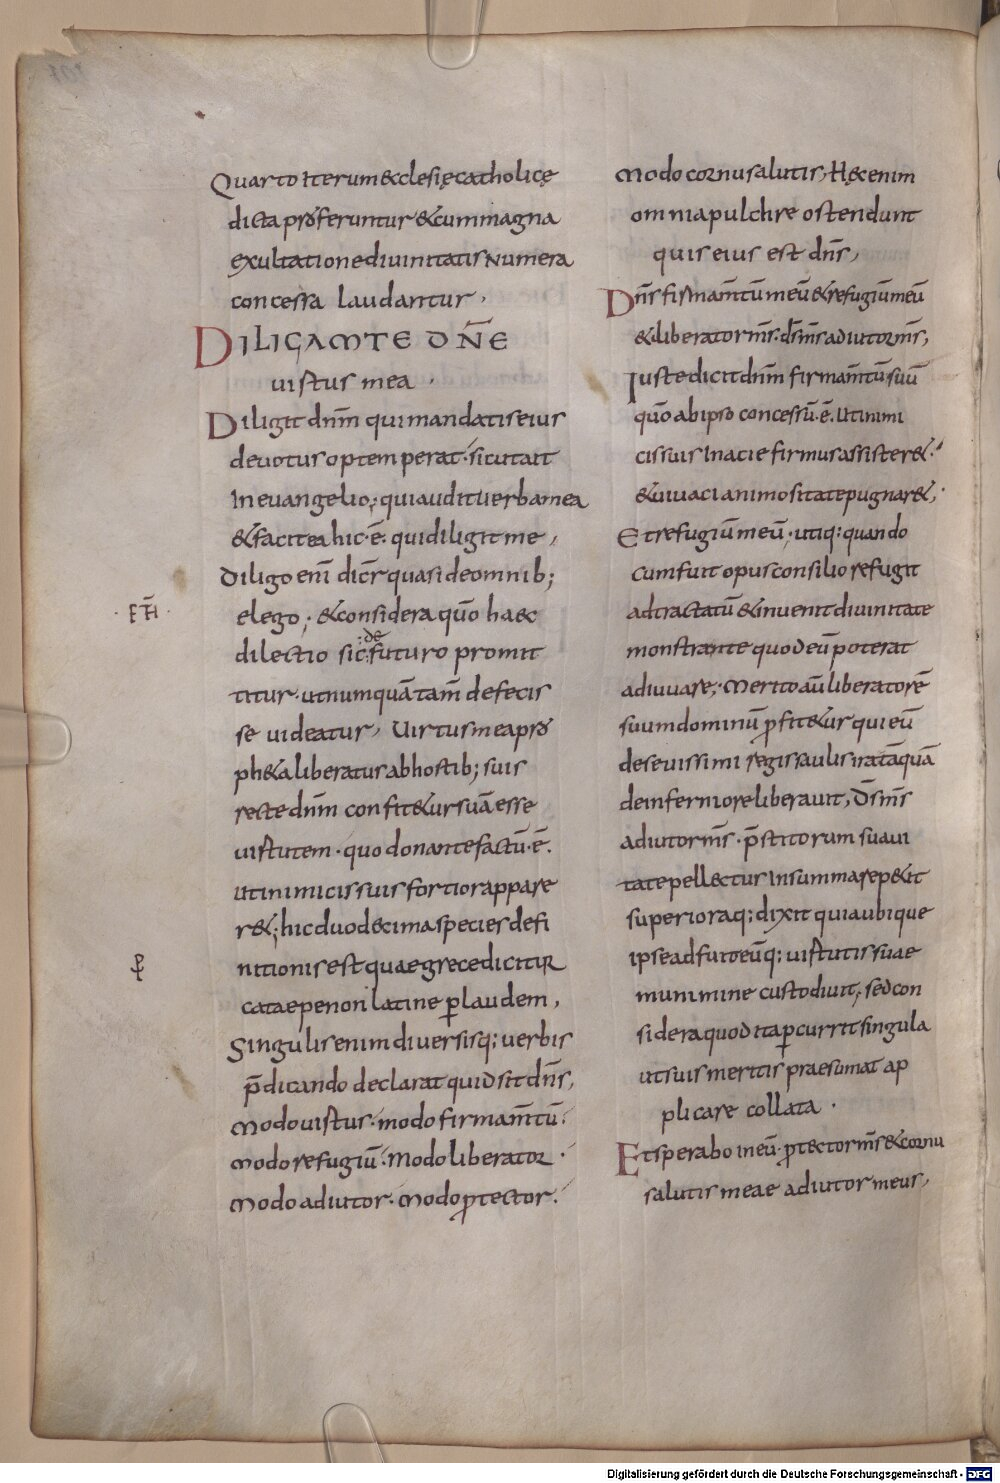 Quarto iterum &cclesię catholicę
dicta proferuntur & cum magna
exultatione diuinitatis numera
concessa laudantur .
DILIGAM TE DN̄E
uirtus mea .
Diligit dn̄m qui mandatis eius
deuotus optemperat · sicut ait
in euangelio ; qui audit uerba mea
& facit ea hic · ē · qui diligit me ,
Diligo enī dicr̄ quasi de omnib;
elego ; & considera quō haec
· E͞TH ·
dilectio sic de futuro promit
titur · ut numquā tam̄ defecis
se uideatur , Uirtus mea pro
ph&a liberatus ab hostib; suis
recte dn̄m confit&ur suā esse
uirtutem · quo donante factū · ē ·
ut inimicis suis fortior appare
r&; hic duodecima species defi
nitionis est quae grece dicitur
cata epenon latine ꝑ laudem ,
Singulis enim diuersisq; uerbis
p̄dicando declarat quid sit dn̄s ,
modo uirtus · modo firmam̄tū ·
modo refugiū · modo liberator ·
modo adiutor · modo ꝓtector ·
modo cornu salutis , Hęc enim
omnia pulchre ostendunt
quis eius est dn̄s ,
Dn̄s firmam̄tū meū & refugiū meū
& liberator m̄s · d̄s m̄s adiutor m̄s ,
Iuste dicit dn̄m firmam̄tū suū
quō ab ipso concessū · ē · ut inimi
cis suis in acie firmus assister& ·
& uiuaci animositate pugnar& , ·
Et refugiū meū · utiq: quando
cum fuit opus consilio refugit
ad tractatū & inuenit diuinitate
monstrante quod eū poterat
adiuuare ; · Merito aū liberatorē
suum dominū ꝓfit&ur qui eū
de seuissimi regis saulis irātā quā
de inferiore liberauit , D̄s m̄s
adiutor m̄s · p̄stitorum suaui
tate pellectus in summa rep&it
superioraq; dixit quia ubique
ipse ad futoeūq; uirtutis suae
munimine custodiuit ; sed con
sidera quod ita ꝑcurrit singula
ut suis meritis praesumat ap
plicare collata ·
Et sperabo in eū · ꝓtector m̄s & cornu
salutis meae adiutor meus ,